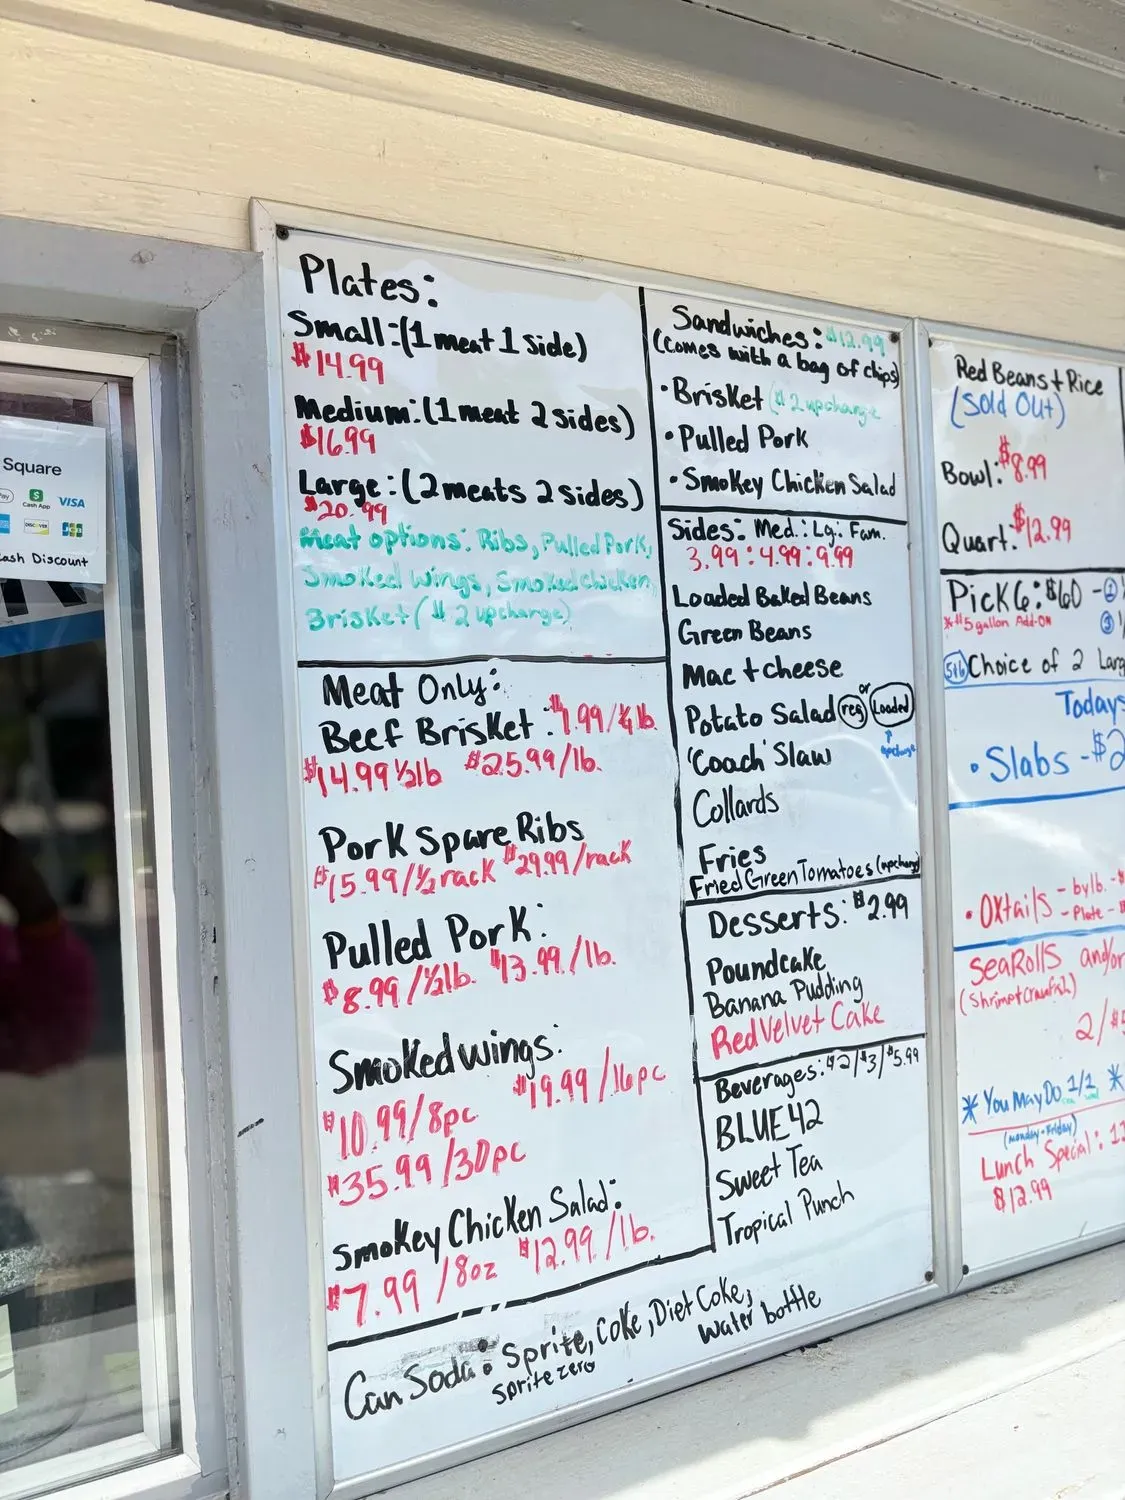 Square
Pay
Cash App
VISA
DISCOVER
JCB
ash Discount
Plates:
Small:(1 meat 1 side)
$14.99
Medium:(1 meat 2 sides)
$16.99
Large:(2 meats 2 sides)
$20.99
Meat options: Ribs, Pulled Pork,
Smoked Wings, Smoked chicken,
Brisket ($2 upcharge)
Meat Only:
Beef Brisket: $7.99/¼ lb.
$14.99 ½lb $25.99/lb.
Pork Spare Ribs
$15.99/½ rack $29.99/rack
Pulled Pork:
$8.99/½lb. $13.99/lb.
Smoked wings:
$10.99/8pc $19.99/16pc
$35.99/30pc
Smokey Chicken Salad:
$7.99/8oz $12.99/lb.
Can Soda: Sprite, Coke, Diet Coke,
sprite zero water bottle
Sandwiches: $12.99
(comes with a bag of chips)
• Brisket ($2 upcharge
• Pulled Pork
• Smokey Chicken Salad
Sides: Med.: Lg.: Fam.
3.99 : 4.99 : 9.99
Loaded Baked Beans
Green Beans
Mac + cheese
Potato Salad reg or Loaded
upcharge
'Coach' Slaw
Collards
Fries
Fried Green Tomatoes (upcharge)
Desserts: $2.99
Poundcake
Banana Pudding
Red Velvet Cake
Beverages: $2/$3/$5.99
BLUE 42
Sweet Tea
Tropical Punch
Red Beans + Rice
(Sold Out)
Bowl: $8.99
Quart: $12.99
Pick 6: $60 - ①
*$5 gallon Add-On ③
5&6 Choice of 2 Larg
Todays
• Slabs - $2
• Oxtails - by lb. - $
- Plate - $
Sea Rolls and/or
(Shrimp + Crawfish)
2/$5
* You May Do 1/1 *
(monday-Friday)
Lunch Special: 11
$12.99